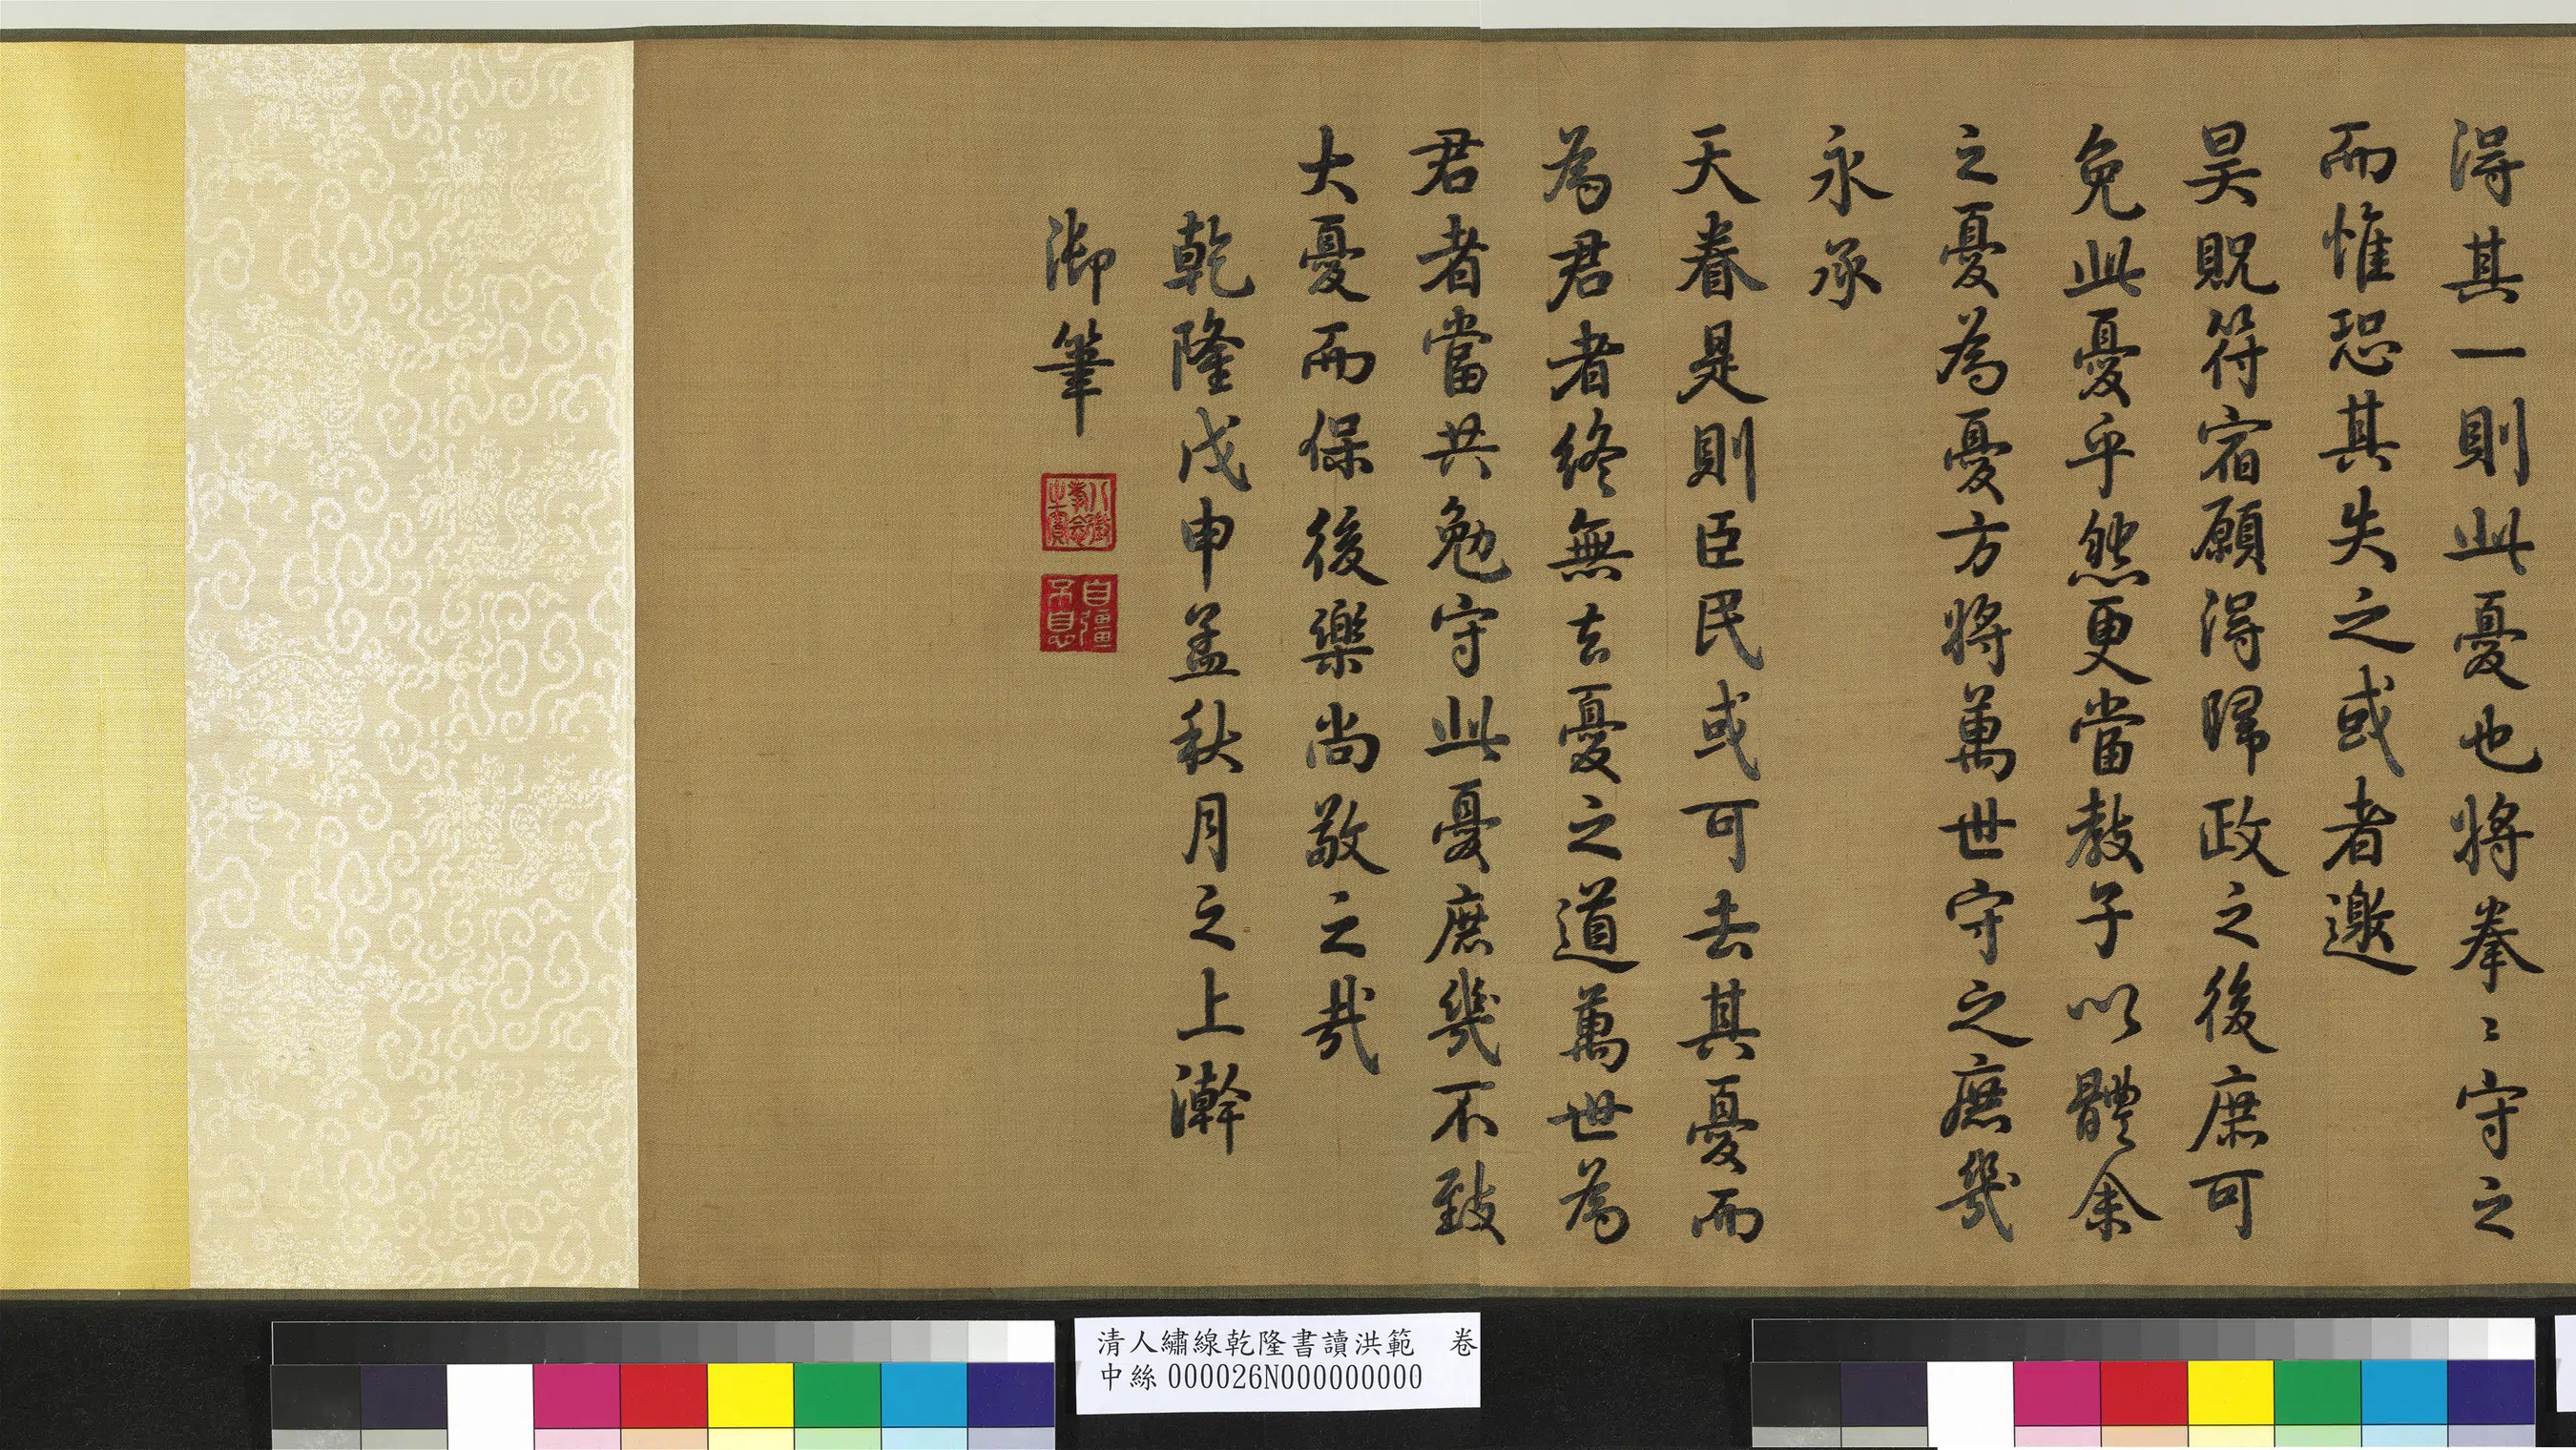 得其一則此憂也將拳〻守之
而惟恐其失之或者邀
昊貺符宿願得歸政之後庶可
免此憂乎然更當教子以體余
之憂為憂方將萬世守之庶幾
永承
天眷是則臣民或可去其憂而
為君者終無去憂之道萬世為
君者當共勉守此憂庶幾不致
大憂而保後樂尚敬之哉
乾隆戊申孟秋月之上澣
御筆
八徵耄念之寶
自彊不息
清人繡線乾隆書讀洪範 卷
中絲000026N000000000